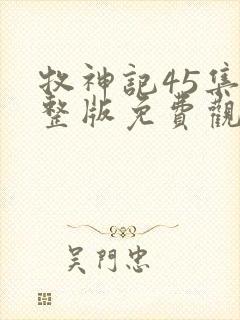 牧神記45集
整版免費觀
吴門忠